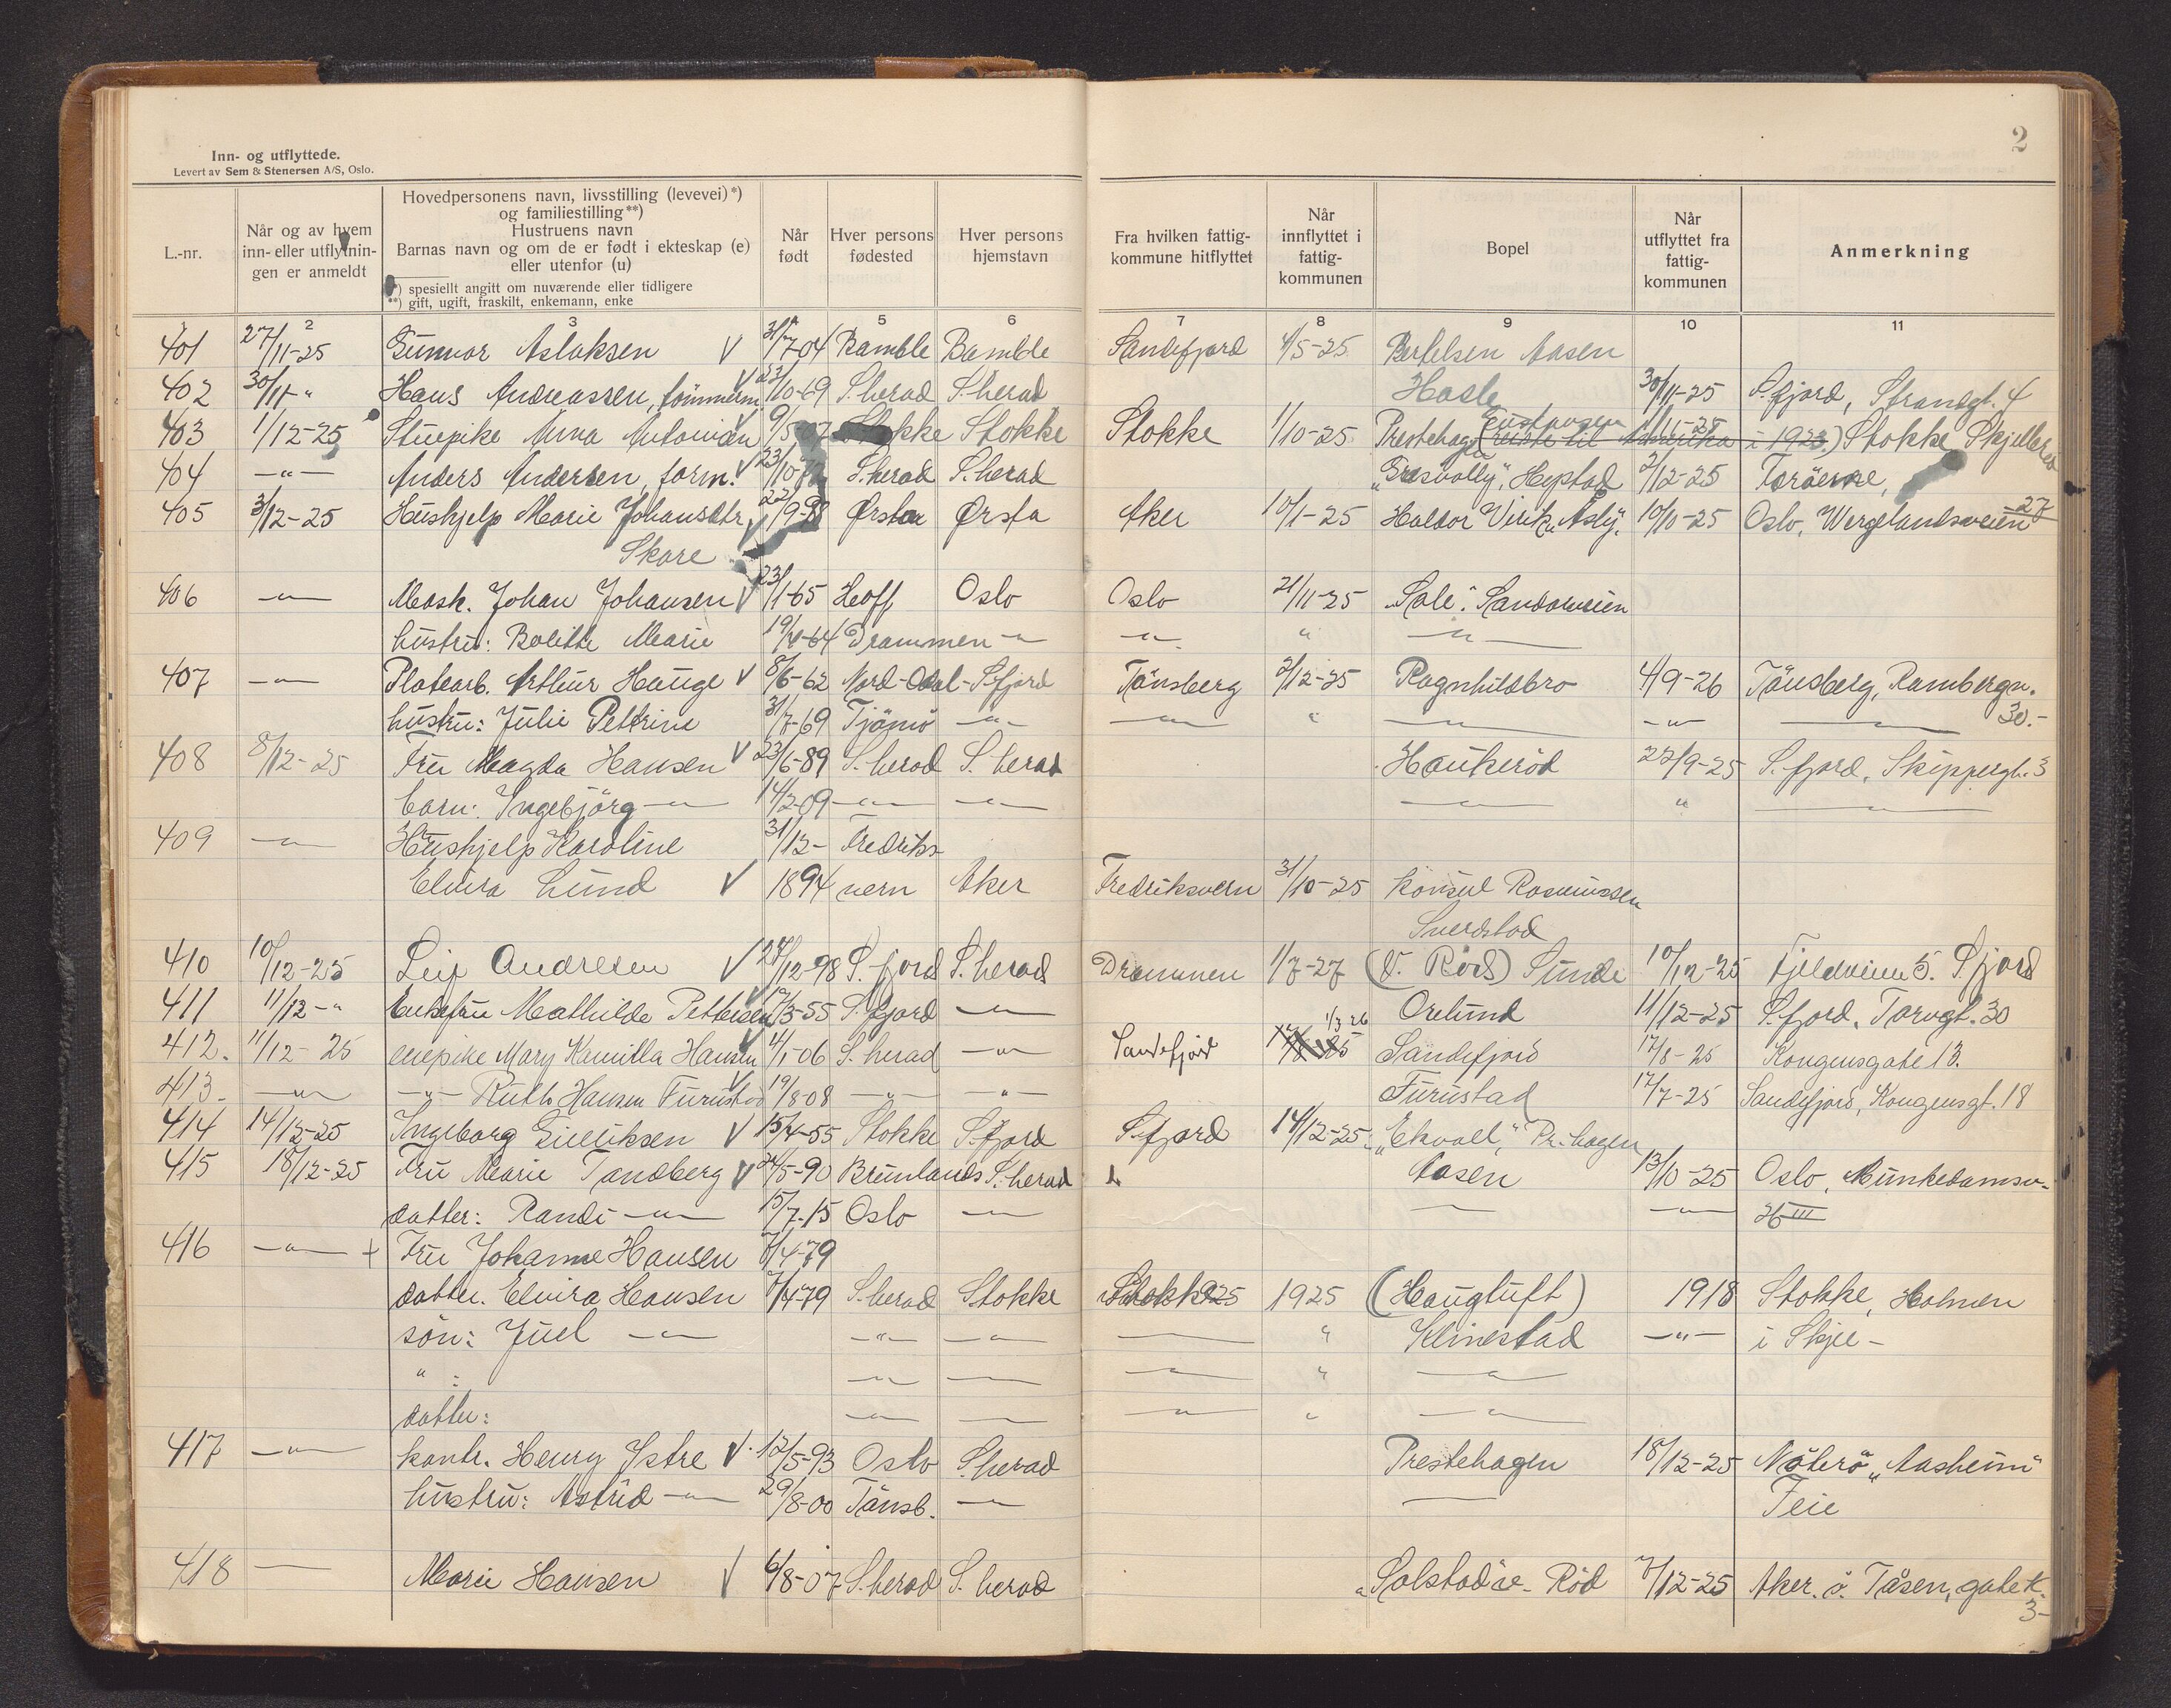 2
Inn- og utflyttede.
Levert av Sem & Stenersen A/S, Oslo.
L.-nr.
Når og av hvem inn- eller utflytnin- gen er anmeldt
Hovedpersonens navn, livsstilling (levevei)*)
og familiestilling**)
Hustruens navn
Barnas navn og om de er født i ekteskap (e)
eller utenfor (u)
*) spesiellt angitt om nuværende eller tidligere
**) gift, ugift, fraskilt, enkemann, enke
Når født
Hver persons fødested
Hver persons hjemstavn
Fra hvilken fattig- kommune hitflyttet
Når innflyttet i fattig- kommunen
Bopel
Når utflyttet fra fattig- kommunen
Anmerkning
2 3 4 5 6 7 8 9 10 11
401 27/11-25 Gunvor Aslaksen V 31/7-04 Bamble Bamble Sandefjord 4/5-25 Bertelsen Aasen
402 30/11-" Hans Andreassen, tömmerm. V 23/10-69 S.herad S.herad Hasle 30/11-25 S.fjord, Strandgt. 4
403 1/12-25 Stuepike Anna Antonisen V 9/5-07 Stokke Stokke Stokke 1/10-25 Prestehagen (reiste til Amerika i 1923) 1/11-25 Stokke Skjellerød
404 -"- Anders Andersen, form. V 23/10-72 S.herad S.herad "Grasvolly", Heystad 2/12-25 Toröerne,
405 3/12-25 Hushjelp Marie Johansdtr. V 22/9-88 Ørsta Ørsta Aker 10/1-25 Haldor Virik, Asly. 10/10-25 Oslo, Wergelandsveien 27
Skare
406 -"- Mask. Johan Johansen V 23/1-65 Hoff Oslo Oslo 21/11-25 "Sole". Sandarveien
hustru: Bolette Marie 19/4-64 Drammen -"- -"- " -"-
407 -"- Platearb. Arthur Hauge V 8/6-62 Nord-Odal S.fjord Tönsberg 2/12-25 Ragnhildbro 4/9-26 Tönsberg, Rambergv.
hustru: Julie Petrine 31/7-69 Tjömö -"- -"- " -"- -"- -"- 30.-
408 8/12-25 Fru Magda Hansen V 23/6-89 S.herad S.herad Haukeröd 22/9-25 S.fjord, Skippergt. 3
barn: Ingebjörg -"- 14/2-09 -"- -"- -"- " -"-
409 -"- Hushjelp Karoline 31/12- Fredriks-
Elvira Lund V 1894 vern Aker Fredriksvern 31/10-25 konsul Rasmussen
Sverdstad
410 10/12-25 Leif Andresen V 27/12-98 S.fjord S.herad Drammen 1/7-27 (V. Röd) Sunde 10/12-25 Fjeldveien 5. S.fjord
411 11/12-" Enkefru Mathilde Pettersen V 17/3-55 S.fjord -"- Orelund 11/12-25 S.fjord, Torvgt. 30
412. 11/12-25 enepike Mary Kamilla Hansen V 4/1-06 S.herad -"- Sandefjord 1/3 26 Sandefjord 17/8-25 Kongensgate 13.
413. -"- -"- Ruth Hansen Furustad V 19/8-08 -"- -"- Furustad 17/7-25 Sandefjord, Kongensgt. 18
414 14/12-25 Ingeborg Gulliksen V 15/4-55 Stokke S.fjord S.fjord 14/12-25 "Ekvoll", Pr.hagen
415 18/12-25 Fru Marie Tandberg V 24/5-90 Brunlanes S.herad Aasen 13/10-25 Oslo, Munkedamsv.
datter: Randi -"- 15/7-15 Oslo -"- -"- -"- 26 III
416 -"- + Fru Johanne Hansen 7/4-79
datter. Elvira Hansen 7/4-79 S.herad Stokke Stokke 1925 (Haugtuft) 1918 Stokke, Holmen
sön: Juel -"- -"- -"- -"- " Klinestad -"- i Skjee-
" : -"- -"- -"- " -"-
datter: -"- -"- -"- " -"-
417 -"- kontr. Henry Istre V 12/5-93 Oslo S.herad Prestehagen 18/12-25 Nöterö "Aasheim"
hustru: Astrid -"- 29/8-00 Tönsb. -"- -"- Teie
418 -"- Marie Hansen V 6/8-07 S.herad S.herad "Solstad" v. Röd 7/12-25 Aker. ö. Tåsen, gate K
3-